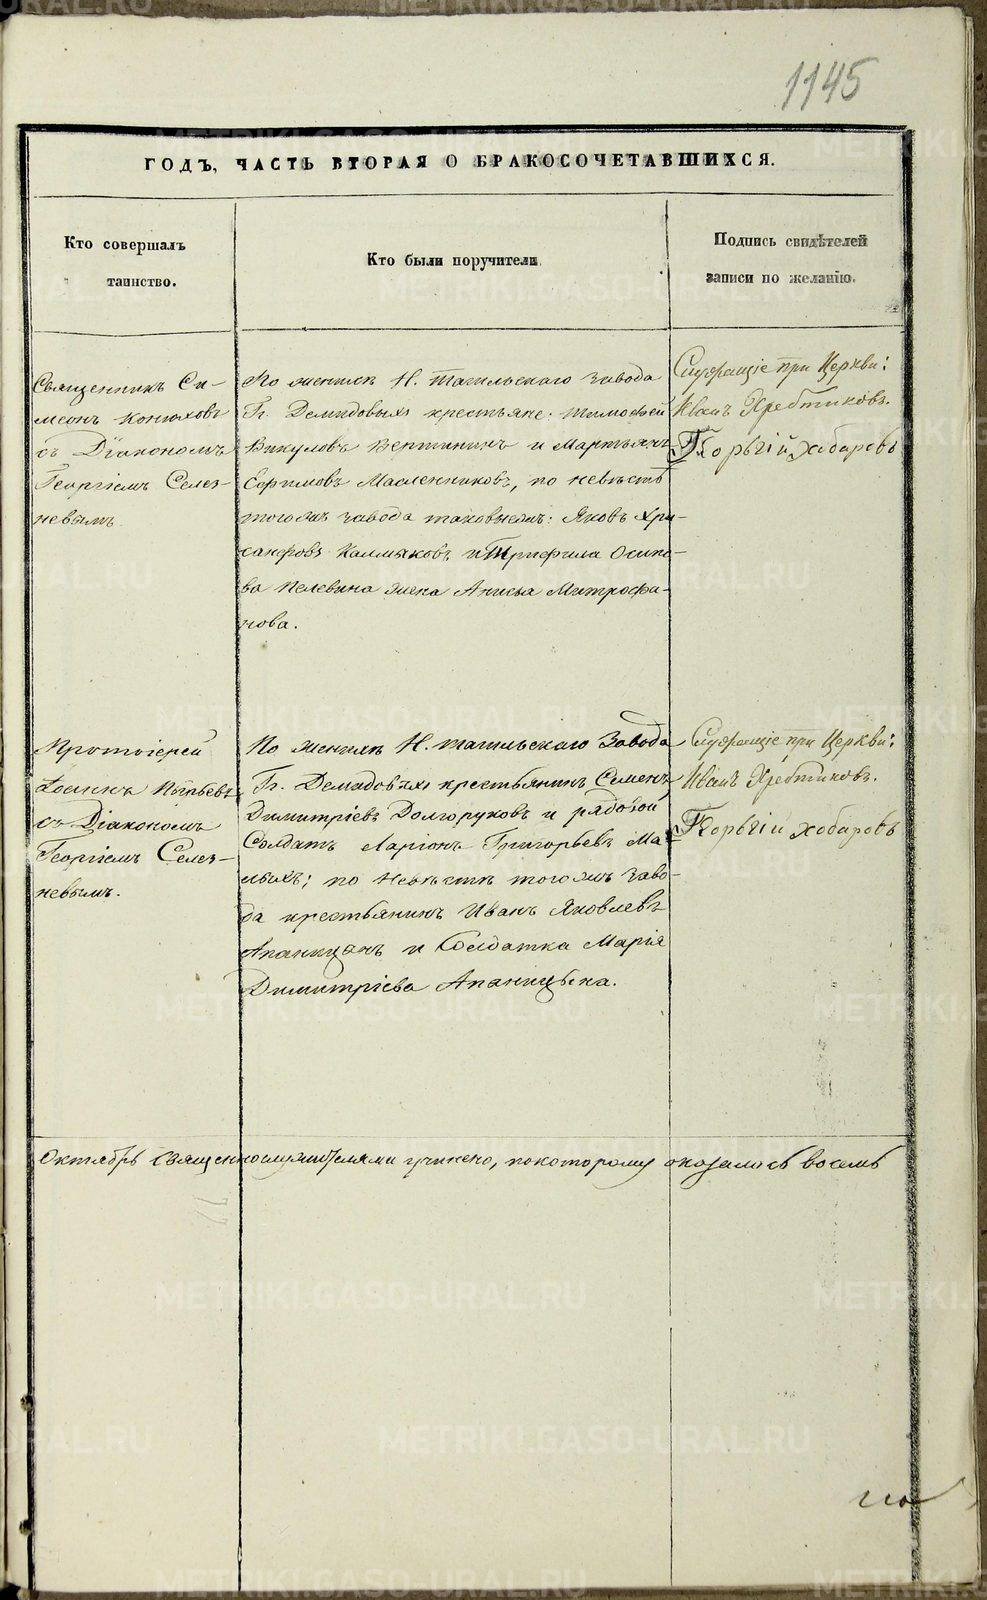 1145
ГОДЪ, ЧАСТЬ ВТОРАЯ О БРАКОСОЧЕТАВШИХСЯ.
Кто совершалъ
таинство.
Кто были поручители
Подпись свидѣтелей
записи по желанію.
Священникъ Си-
меонъ Конюховъ
съ Діакономъ
Георгіемъ Селез-
невымъ
По женихѣ Н. Тагильскаго завода
Гг. Демидовыхъ крестьяне: Тимофей
Викуловъ и Мартьянъ
Ефимовъ Масленниковъ, по невѣстѣ
того жъ завода таковыежъ: Яковъ Хри-
санфовъ Калмыковъ и Трифила Осипо-
ва Пелевина жена Анисья Митрофа-
нова.
Служащіе при Церкви:
Иванъ Хребтиковъ.
Георьгій Хобаровъ
Протоіерей
Іоаннъ Пырьевъ
съ Діакономъ
Георгіемъ Селез-
невымъ.
По женихѣ Н. Тагильскаго Завода
Гг. Демидовыхъ крестьянинъ Семенъ
Димитріевъ Долгоруковъ и рядовой
Солдатъ Ларіонъ Григорьевъ Ма-
лыхъ; по Невѣстѣ того жъ Заво-
да крестьянинъ Иванъ Яковлевъ
Апаницынъ и Солдатка Марія
Димитріева Апаницына.
Служащіе при Церкви:
Иванъ Хребтиковъ.
Георьгій Хобаровъ
Октябрь священнослужителями учинено, по которому оказалось восемь
METRIKI.GASO-URAL.RU